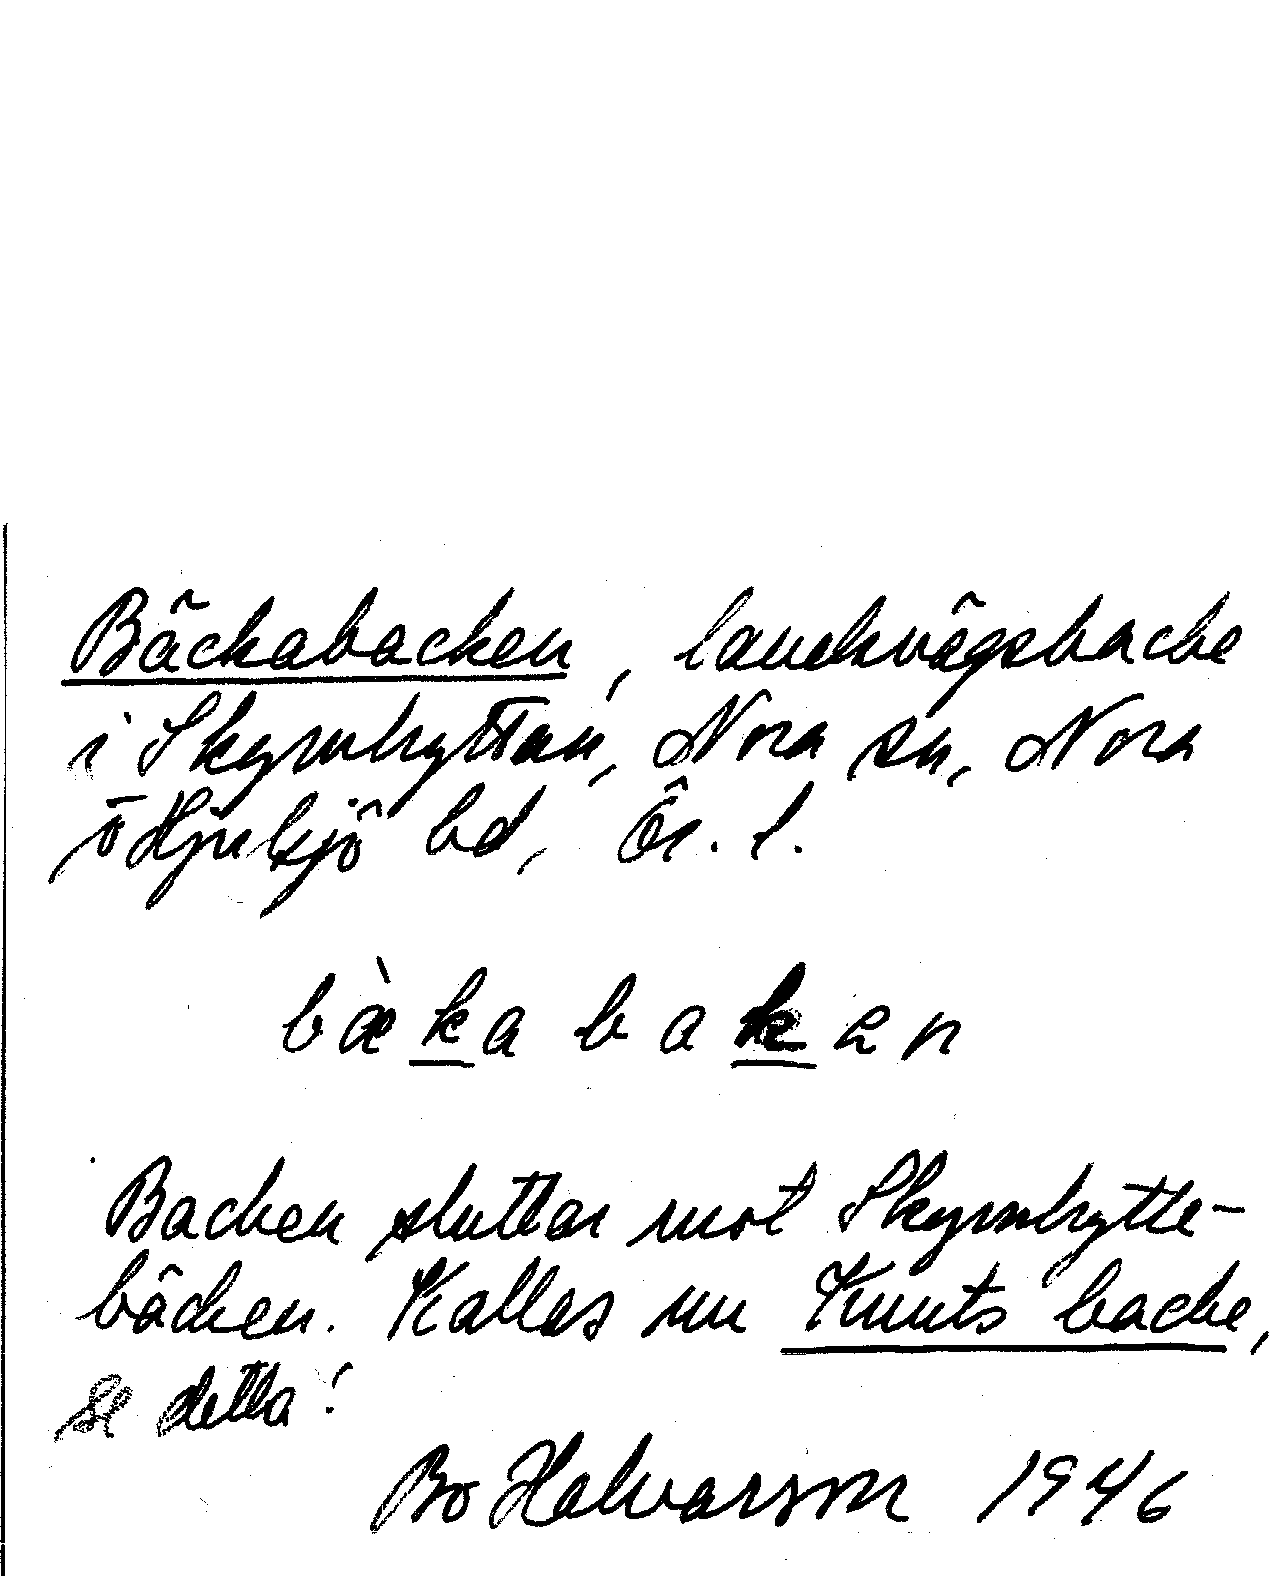 Bäckabacken, landsvägsbacke
i Skymhyttan, Nora sn, Nora
o Hjulsjö bd, Ör. l.
bæ̀kabakən
Backen sluttar mot Skymhytte-
bäcken. Kallas nu Knuts backe,
se detta!
Bo Halvarson 1946